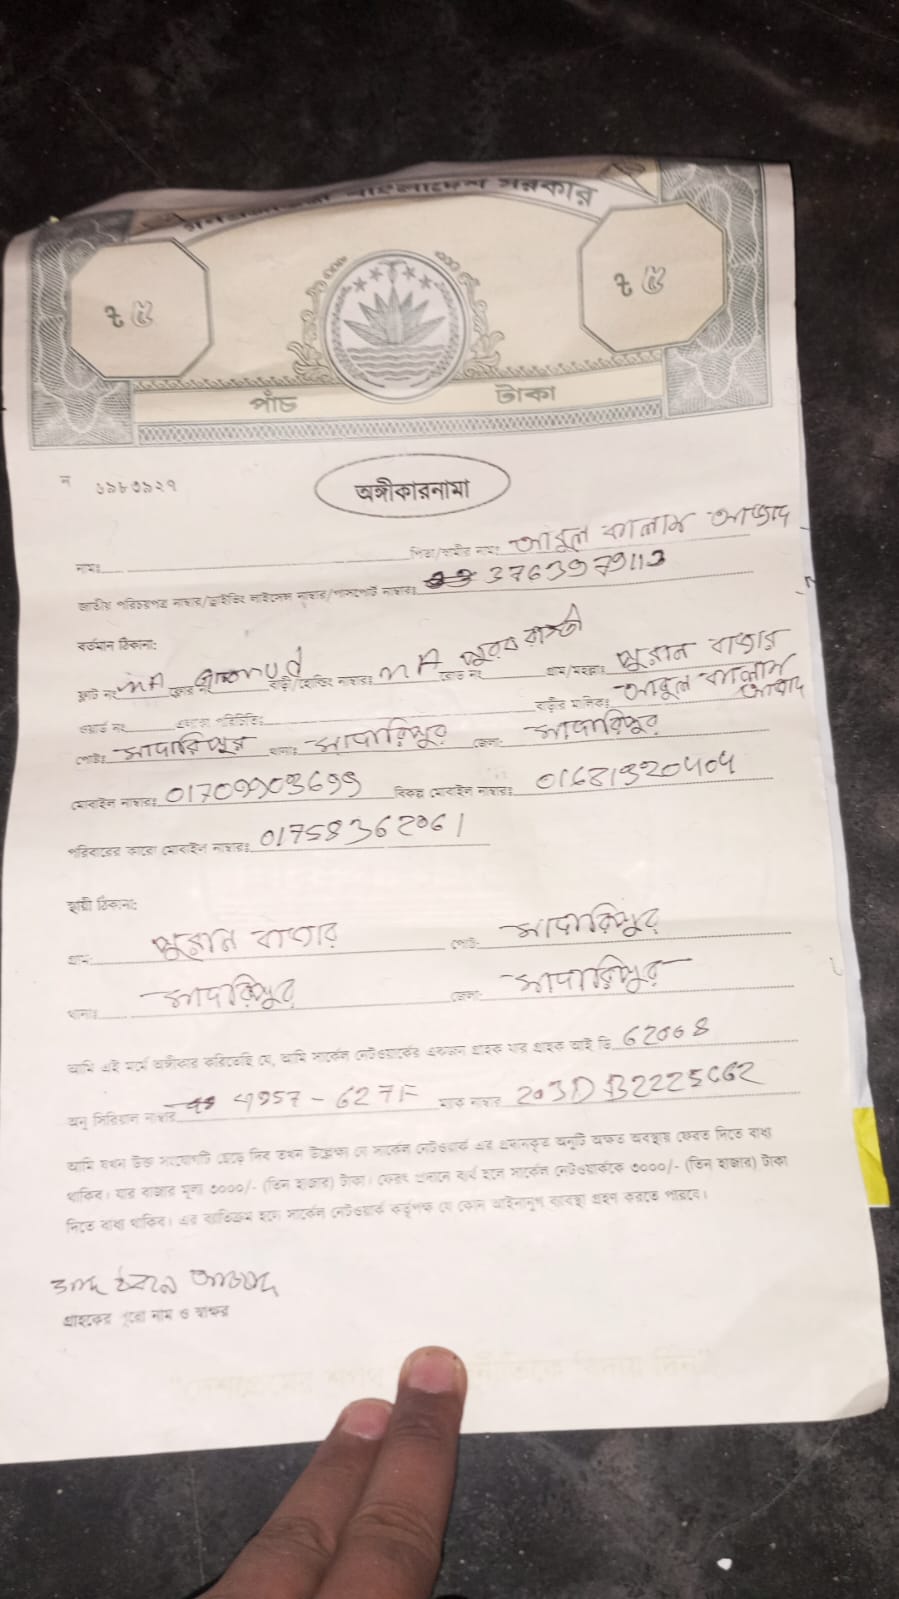 গণপ্রজাতন্ত্রী বাংলাদেশ সরকার
৳ ৫ ৳ ৫
পাঁচ টাকা
অঙ্গীকারনামা
নামঃ পিতা/স্বামীর নামঃ আবুল কালাম আজাদ
জাতীয় পরিচয়পত্র নাম্বার/ড্রাইভিং লাইসেন্স নাম্বার/পাসপোর্ট নাম্বারঃ
বর্তমান ঠিকানা:
ফ্লাট নং MA ফ্লোর নং বাড়ী/হোল্ডিং নাম্বারঃ MA রোড নং গ্রাম/মহল্লাঃ পুরান বাজার
ওয়ার্ড নং এলাকা পরিচিতিঃ বাড়ীর মালিকঃ আবুল কালাম আজাদ
পোষ্টঃ মাদারিপুর থানাঃ মাদারিপুর জেলা: মাদারিপুর
মোবাইল নাম্বারঃ বিকল্প মোবাইল নাম্বারঃ
পরিবারের কারো মোবাইল নাম্বারঃ 01758362061
স্থায়ী ঠিকানা:
গ্রাম: পুরান বাজার পোষ্ট: মাদারিপুর
থানাঃ মাদারিপুর জেলা: মাদারিপুর
আমি এই মর্মে অঙ্গীকার করিতেছি যে, আমি সার্কেল নেটওয়ার্কের একজন গ্রাহক যার গ্রাহক আই ডি 62068
অনু সিরিয়াল নাম্বার 4957-627F ম্যাক নাম্বার
আমি যখন উক্ত সংযোগটি ছেড়ে দিব তখন উল্লেখ্য যে সার্কেল নেটওয়ার্ক এর প্রদানকৃত অনুটি অক্ষত অবস্থায় ফেরত দিতে বাধ্য
থাকিব। যার বাজার মূল্য ৩০০০/- (তিন হাজার) টাকা। ফেরৎ প্রদানে ব্যর্থ হলে সার্কেল নেটওয়ার্ককে ৩০০০/- (তিন হাজার) টাকা
দিতে বাধ্য থাকিব। এর ব্যতিক্রম হলে সার্কেল নেটওয়ার্ক কর্তৃপক্ষ যে কোন আইনানুগ ব্যবস্থা গ্রহন করতে পারবে।
গ্রাহকের পুরো নাম ও স্বাক্ষর